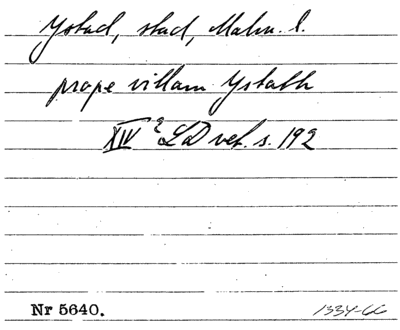 Ystad, stad, Malm. l.
prope villam Ystath
XIV 2 LD vet. s. 192
Nr 5640. 1334-66